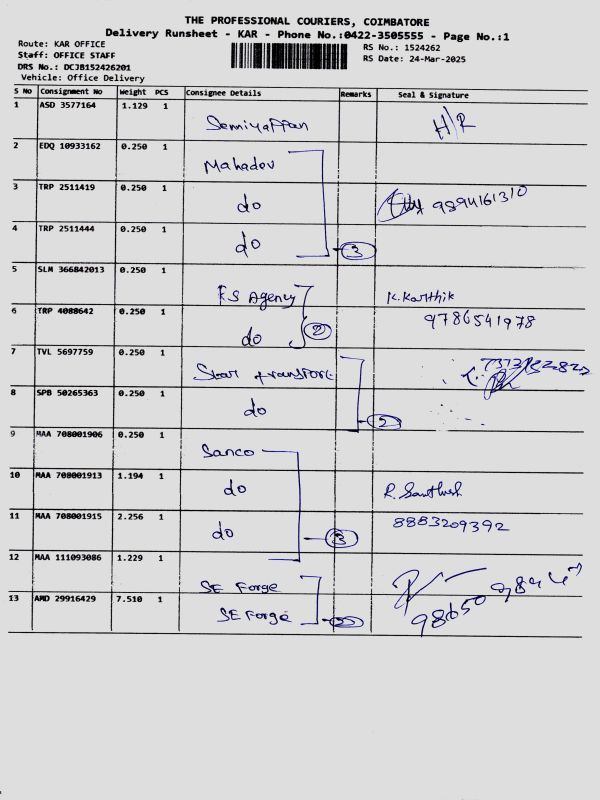 THE PROFESSIONAL COURIERS, COIMBATORE
Delivery Runsheet - KAR - Phone No.:0422-3505555 - Page No.:1
Route: KAR OFFICE
Staff: OFFICE STAFF
DRS No.: DCJB152426201
Vehicle: Office Delivery
RS No.: 1524262
RS Date: 24-Mar-2025
S No Consignment No Weight PCS Consignee Details Remarks Seal & Signature
1 ASD 3577164 1.129 1 H/R
2 EDQ 10933162 0.250 1 Mahadev
3 TRP 2511419 0.250 1 do 9894161310
4 TRP 2511444 0.250 1 do 3
5 SLM 366842013 0.250 1 F.S Agency K.Karthik
6 TRP 4088642 0.250 1 do 2 9786541978
7 TVL 5697759 0.250 1 Star transport
8 SPB 50265363 0.250 1 do 2
9 MAA 708001906 0.250 1 Sanco
10 MAA 708001913 1.194 1 do R. Santhosh
11 MAA 708001915 2.256 1 do 3 8883209392
12 MAA 111093086 1.229 1 SE Forge
13 AMD 29916429 7.510 1 SE Forge 98650